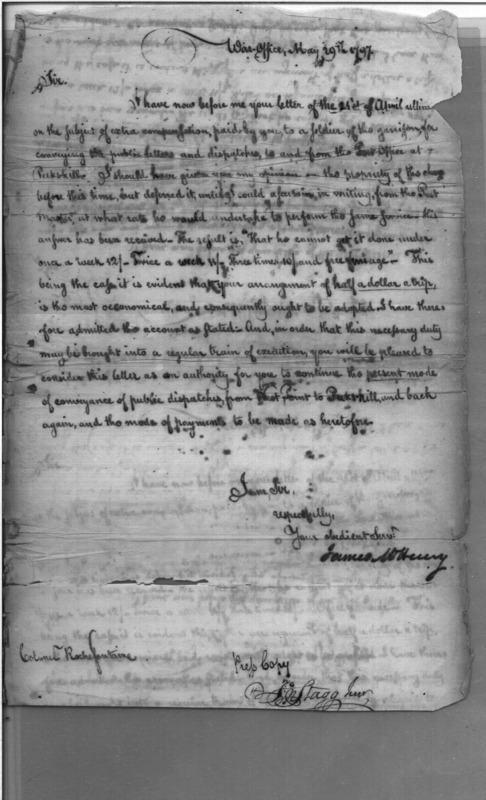 War-Office, May 29th 1797.
Sir.
I have now before me your letter of the 21st of April ultimo
on the subject of extra compensation, paid, by you, to a soldier of the garrison, for
conveying the public letters and dispatches, to and from the Post Office at
Peekskill. I should have given you my opinion on the propriety of the charge
before this time, but deferred it, until I could ascertain, in writing, from the Post
Master, at what rate he would undertake to perform the same service - his
answer has been received - The result is, "that he cannot get it done under
once a week 12/- Twice a week 11/ Three times 10/ and free ferriage" - This
being the case it is evident that your arrangement of half a dollar a trip,
is the most oeconomical, and consequently ought to be adopted. I have there=
fore admitted the account as stated - And, in order that this necessary duty
may be brought into a regular train of execution, you will be pleased to
consider this letter as an authority for you to continue the present mode
of conveyance of public dispatches, from West Point to Peekskill, and back
again, and the mode of payments to be made as heretofore.
I am Sir,
respectfully,
Your obedient Servt
James McHenry
Colonel Rochefontaine
Press Copy
Jno Stagg Junr